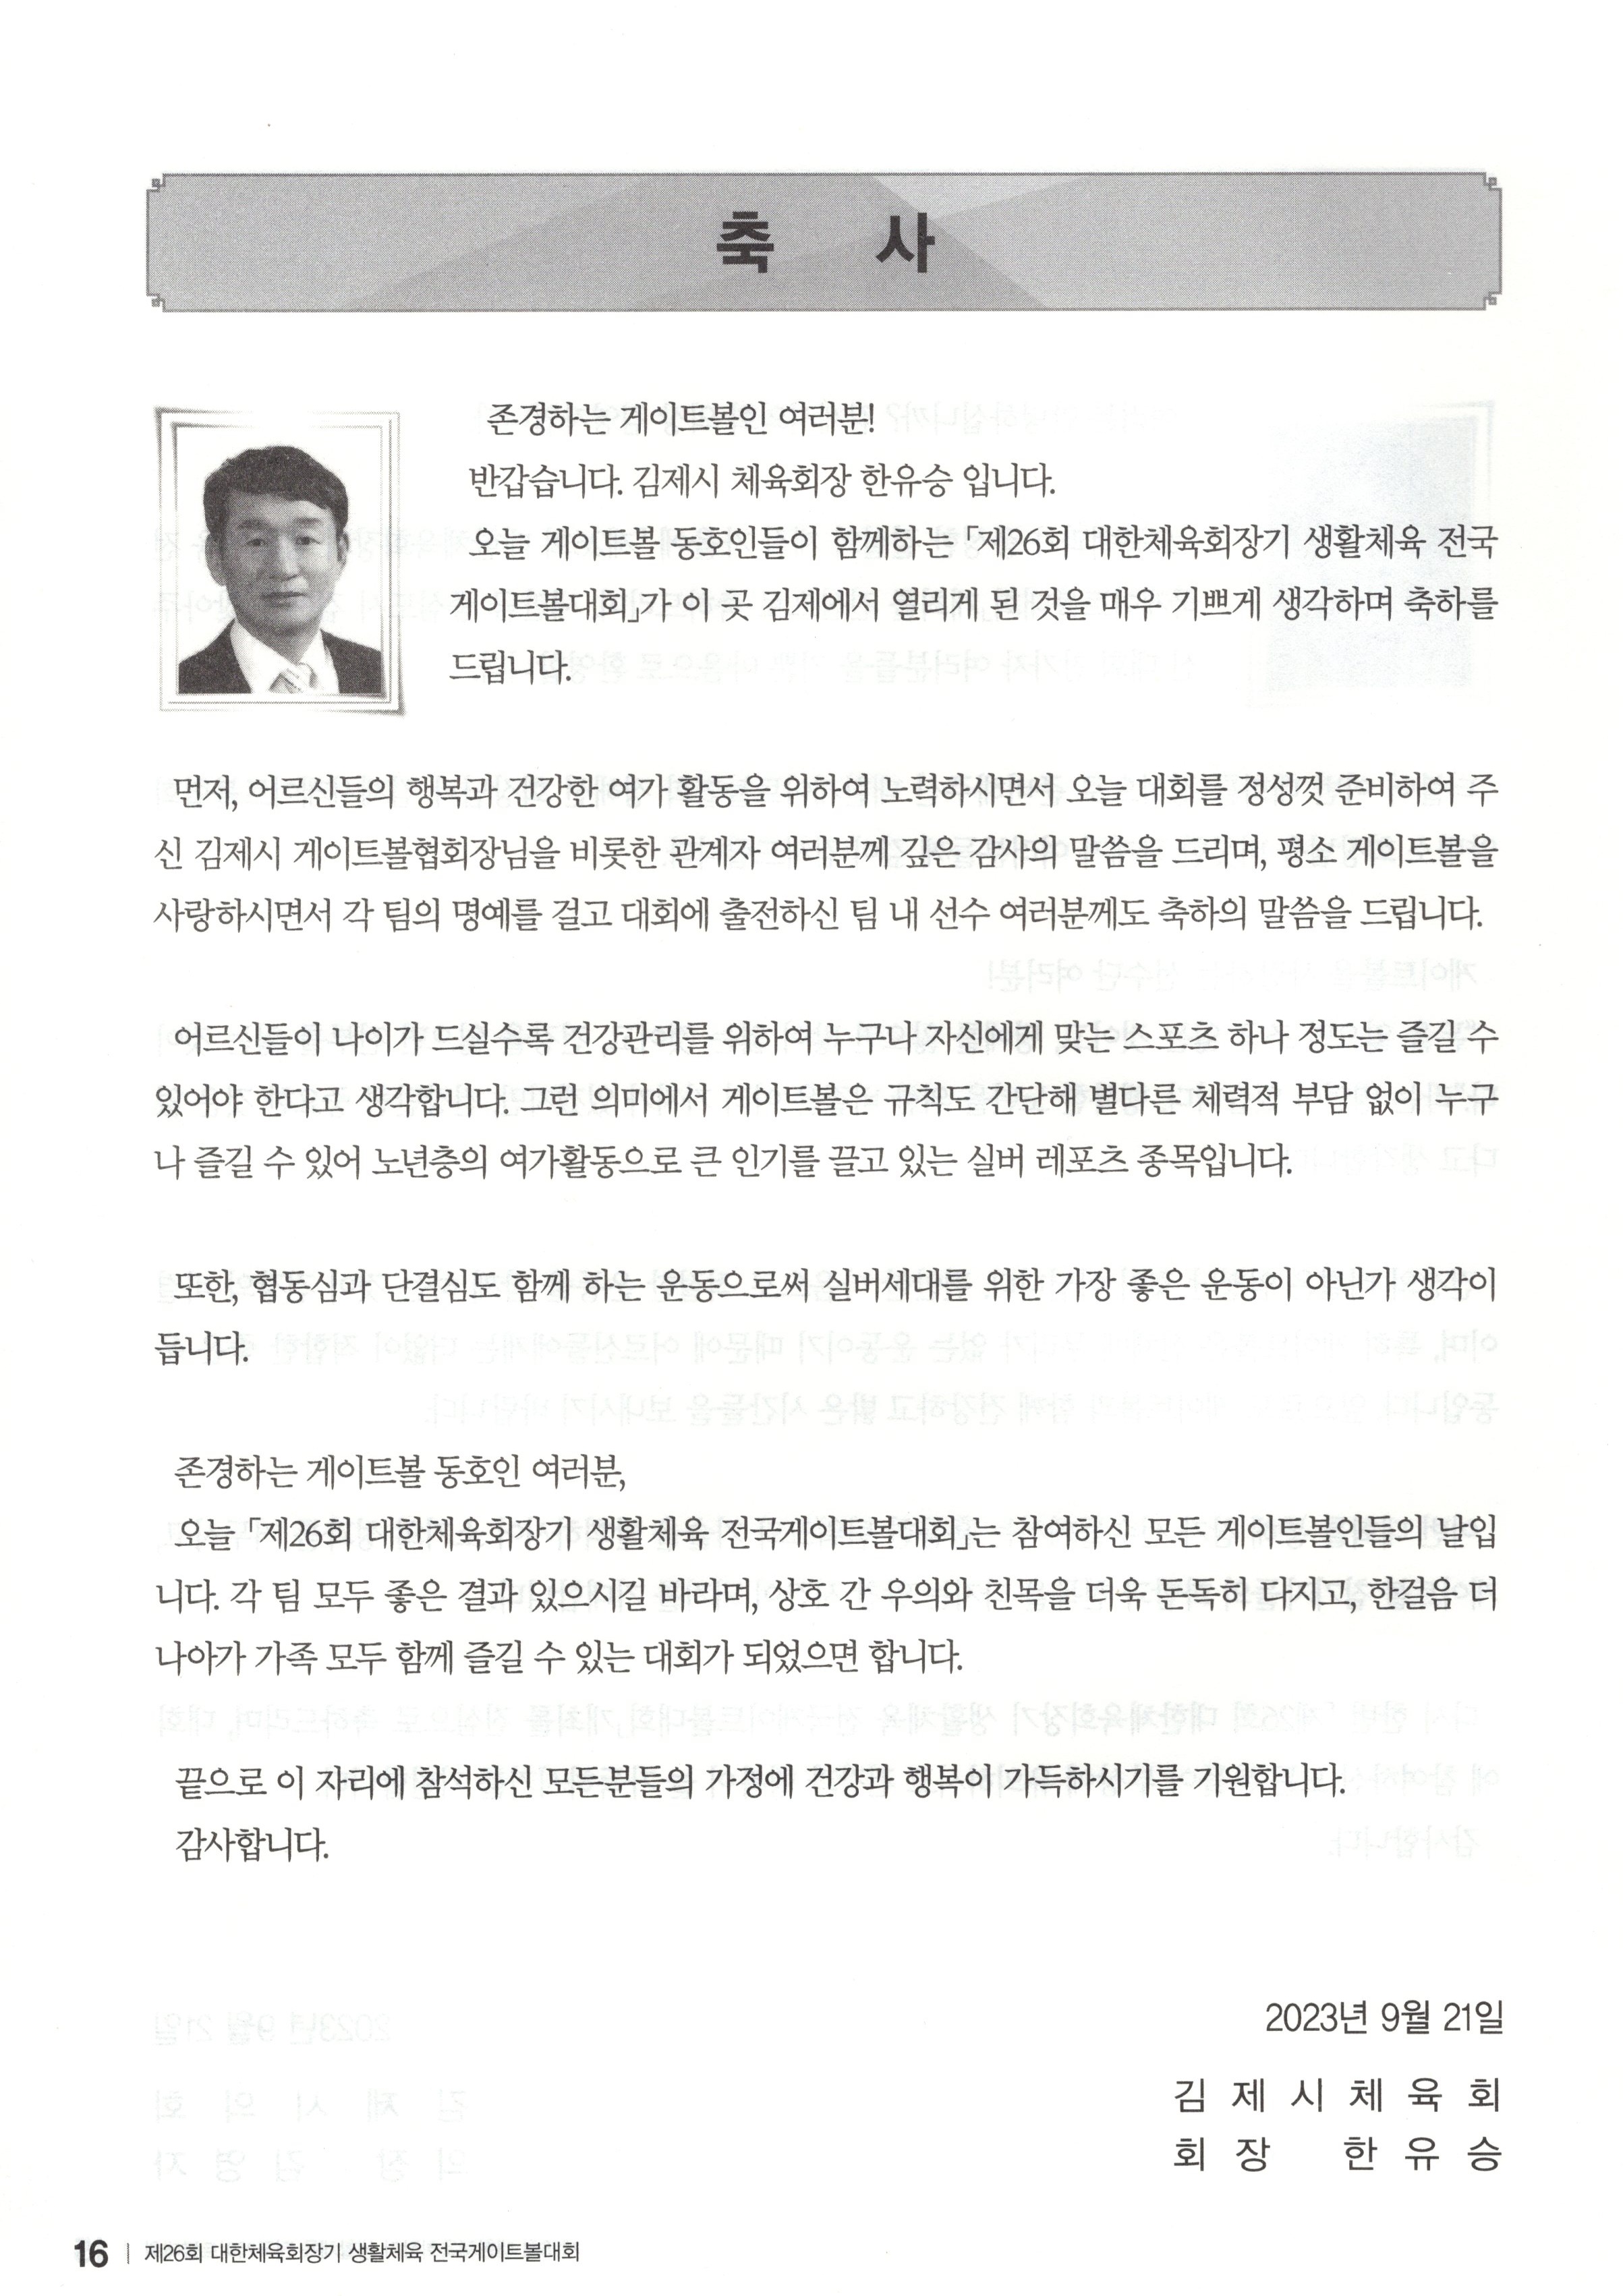 축 사
존경하는 게이트볼인 여러분!
반갑습니다. 김제시 체육회장 한유승 입니다.
오늘 게이트볼 동호인들이 함께하는 「제26회 대한체육회장기 생활체육 전국
게이트볼대회」가 이 곳 김제에서 열리게 된 것을 매우 기쁘게 생각하며 축하를
드립니다.
먼저, 어르신들의 행복과 건강한 여가 활동을 위하여 노력하시면서 오늘 대회를 정성껏 준비하여 주
신 김제시 게이트볼협회장님을 비롯한 관계자 여러분께 깊은 감사의 말씀을 드리며, 평소 게이트볼을
사랑하시면서 각 팀의 명예를 걸고 대회에 출전하신 팀 내 선수 여러분께도 축하의 말씀을 드립니다.
어르신들이 나이가 드실수록 건강관리를 위하여 누구나 자신에게 맞는 스포츠 하나 정도는 즐길 수
있어야 한다고 생각합니다. 그런 의미에서 게이트볼은 규칙도 간단해 별다른 체력적 부담 없이 누구
나 즐길 수 있어 노년층의 여가활동으로 큰 인기를 끌고 있는 실버 레포츠 종목입니다.
또한, 협동심과 단결심도 함께 하는 운동으로써 실버세대를 위한 가장 좋은 운동이 아닌가 생각이
듭니다.
존경하는 게이트볼 동호인 여러분,
오늘 「제26회 대한체육회장기 생활체육 전국게이트볼대회」는 참여하신 모든 게이트볼인들의 날입
니다. 각 팀 모두 좋은 결과 있으시길 바라며, 상호 간 우의와 친목을 더욱 돈독히 다지고, 한걸음 더
나아가 가족 모두 함께 즐길 수 있는 대회가 되었으면 합니다.
끝으로 이 자리에 참석하신 모든분들의 가정에 건강과 행복이 가득하시기를 기원합니다.
감사합니다.
2023년 9월 21일
김 제 시 체 육 회
회 장 한 유 승
16 | 제26회 대한체육회장기 생활체육 전국게이트볼대회